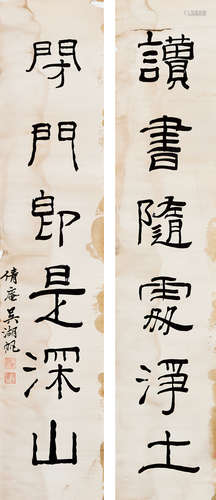 讀書隨處淨土
閉門即是深山
倩庵吳湖帆